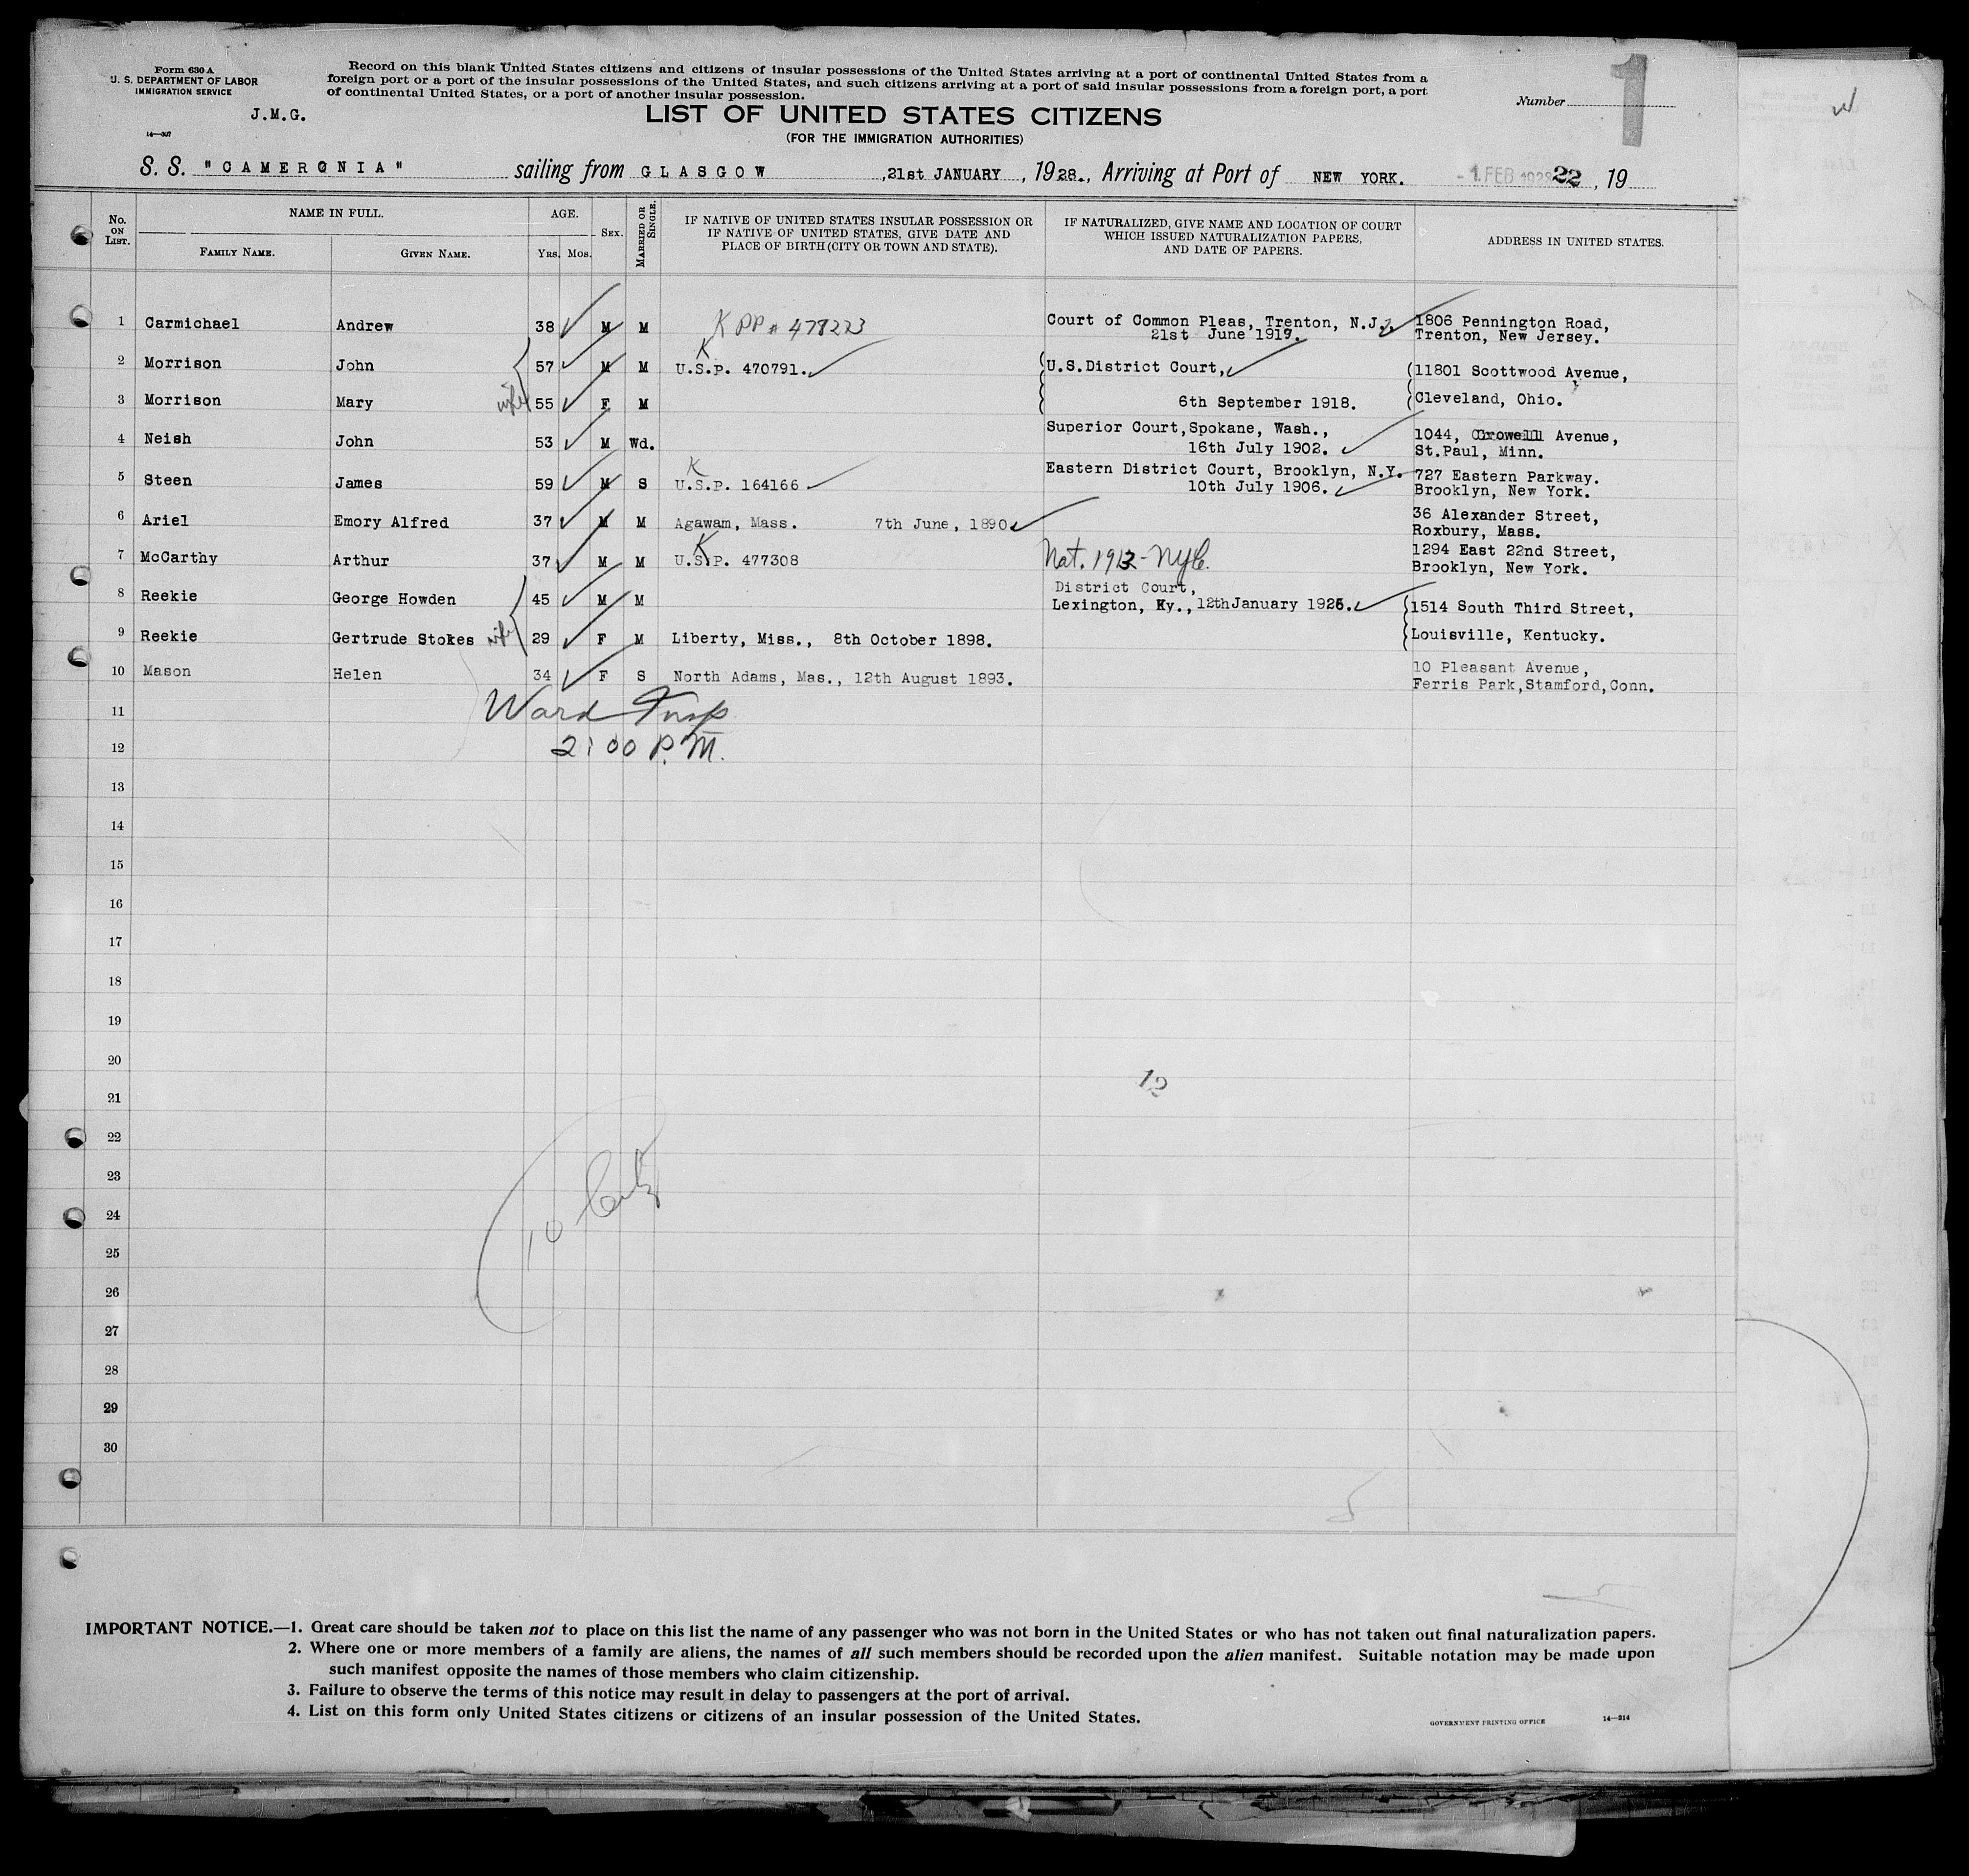 Form 630 A
U. S. DEPARTMENT OF LABOR
IMMIGRATION SERVICE
J.M.G.
14—307
Record on this blank United States citizens and citizens of insular possessions of the United States arriving at a port of continental United States from a
foreign port or a port of the insular possessions of the United States, and such citizens arriving at a port of said insular possessions from a foreign port, a port
of continental United States, or a port of another insular possession.
LIST OF UNITED STATES CITIZENS
(FOR THE IMMIGRATION AUTHORITIES)
Number 1
S. S. "CAMERONIA" sailing from GLASGOW, 21st JANUARY, 1928., Arriving at Port of NEW YORK. -1 FEB 1928 22, 19
No. ON LIST. NAME IN FULL. FAMILY NAME. GIVEN NAME. AGE. YRS. MOS. SEX. MARRIED OR SINGLE. IF NATIVE OF UNITED STATES INSULAR POSSESSION OR IF NATIVE OF UNITED STATES, GIVE DATE AND PLACE OF BIRTH (CITY OR TOWN AND STATE). IF NATURALIZED, GIVE NAME AND LOCATION OF COURT WHICH ISSUED NATURALIZATION PAPERS, AND DATE OF PAPERS. ADDRESS IN UNITED STATES.
1 Carmichael Andrew 38 M M K PP # 478223 Court of Common Pleas, Trenton, N.J. 21st June 1919. 1806 Pennington Road, Trenton, New Jersey.
2 Morrison John 57 M M K U.S.P. 470791. U.S.District Court, 11801 Scottwood Avenue,
3 Morrison Mary wife 55 F M 6th September 1918. Cleveland, Ohio.
4 Neish John 53 M Wd. Superior Court, Spokane, Wash., 16th July 1902. 1044, Avenue, St.Paul, Minn.
5 Steen James 59 M S K U.S.P. 164166 Eastern District Court, Brooklyn, N.Y. 10th July 1906. 727 Eastern Parkway. Brooklyn, New York.
6 Ariel Emory Alfred 37 M M Agawam, Mass. 7th June, 1890 36 Alexander Street, Roxbury, Mass.
7 McCarthy Arthur 37 M M K U.S.P. 477308 Nat. 1912 - NYC. 1294 East 22nd Street, Brooklyn, New York.
8 Reekie George Howden 45 M M District Court, Lexington, Ky., 12th January 1926. 1514 South Third Street,
9 Reekie Gertrude Stokes wife 29 F M Liberty, Miss., 8th October 1898. Louisville, Kentucky.
10 Mason Helen 34 F S North Adams, Mas., 12th August 1893. 10 Pleasant Avenue, Ferris Park, Stamford, Conn.
11 Ward Insp
12 2:00 P.M.
13
14
15
16
17
18
19
20
12
21
22
23
10
24
25
26
27
28
29
30
IMPORTANT NOTICE.—1. Great care should be taken not to place on this list the name of any passenger who was not born in the United States or who has not taken out final naturalization papers.
2. Where one or more members of a family are aliens, the names of all such members should be recorded upon the alien manifest. Suitable notation may be made upon
such manifest opposite the names of those members who claim citizenship.
3. Failure to observe the terms of this notice may result in delay to passengers at the port of arrival.
4. List on this form only United States citizens or citizens of an insular possession of the United States.
GOVERNMENT PRINTING OFFICE
14—314